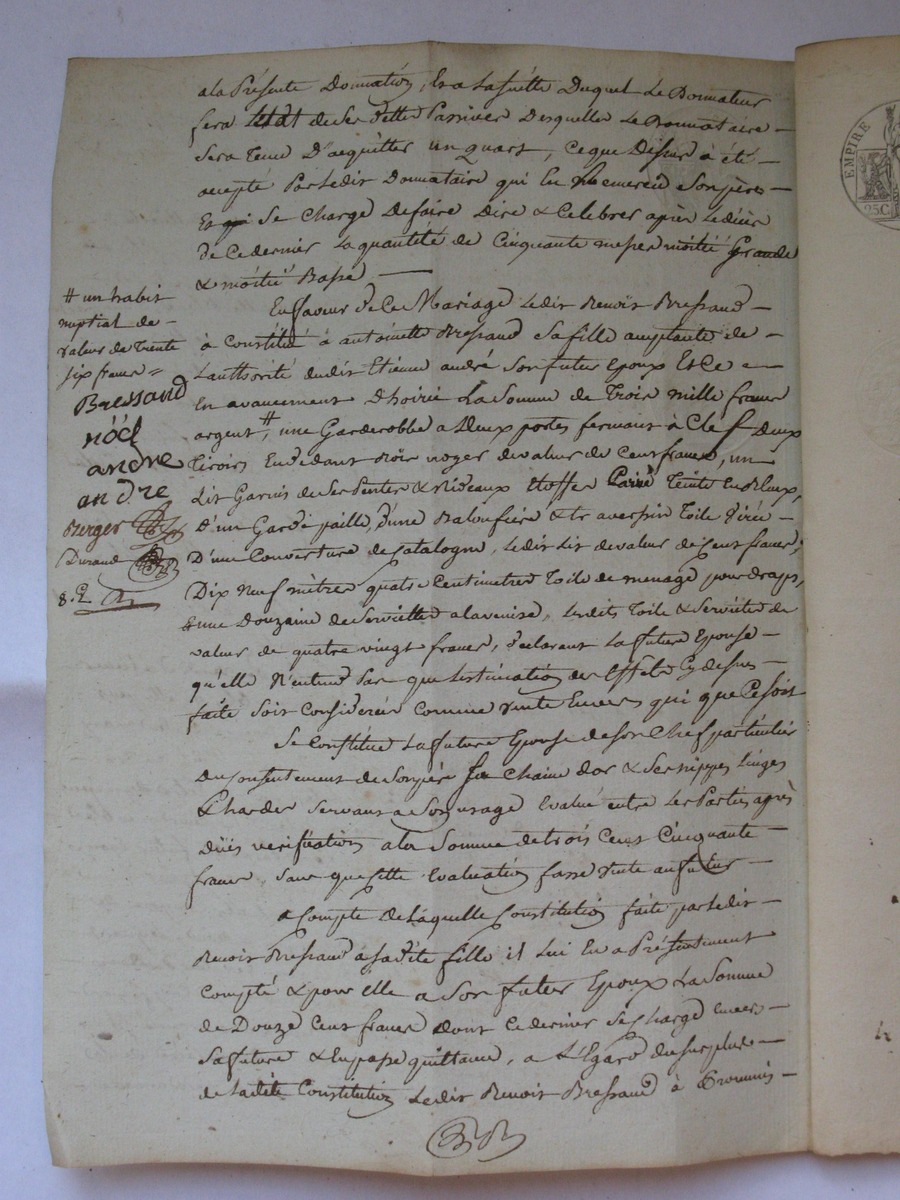 a la Présente Donnation, Et a la suitte Duquel Le Donnateur
sera Letat de ses dettes Passives Desquelles Le Donnataire –
sera tenu D'acquitter un quart, ce que Dessus à été –
accepté Par ledit Donnataire qui En Remercie son père –
Et se Charge de faire Dire & Celebrer après le décès
de Ce dernier La quantité de Cinquante messes moitié Grande
& moitié Basse —
En faveur de Ce Mariage Ledit Benoit Bressand –
à Constitué à antoinette Bressand sa fille acceptante de –
L'authorité dudit Etienne andré son futur Epoux Et Ce –
En avancement D'hoirie La Somme de Trois mille francs
argent, # une Garderobbe a deux portes fermant à Clef Deux
tiroirs En dedans Bois noyer de valeur de Cent francs, un
Lit Garnis de ses Pentes & Rideaux Etoffe Teinte En Bleux,
D'un Garde paille, d'une Baloufière & traversin Toile
D'une Couverture de Catalogne, Ledit Lit de valeur de Cent francs,
Dix Neuf mètres quatre Centimetres toile de menage pour draps,
& une Douzaine de Serviettes a la venise, Lesdits toile & Serviettes de
valeur de quatre vingt francs, declarant La future Epouse –
qu'elle N'entend Pas que L'estimation des Effets Cy dessus –
faite soit Considerée comme vente Envers qui que Ce soit
Se Constitue La future Epouse de son Chef particulier
Du Consentement de son père sa Chaine d'or & ses nippes Linges
& hardes servant a son usage Evalué entre Les Parties après
Dües verification a la Somme de trois Cent Cinquante
francs, sans que cette Evaluation fasse vente au futur –
a Compte de Laquelle Constitution faite par Ledit –
Benoit Bressand a sa dite fille il lui En a Présentement
Compté & pour elle a son futur Epoux La Somme
de Douze Cent francs dont ce dernier se Charge envers –
sa future & En passe quittance, a L'Egard du surplus –
de La dite Constitution Ledit Benoit Bressand à Promis –
# un habit
nuptial de –
valeur de trente
six francs =
Bressand
nöèl
andre
andre
Berger
Durand
EMPIRE
25 C